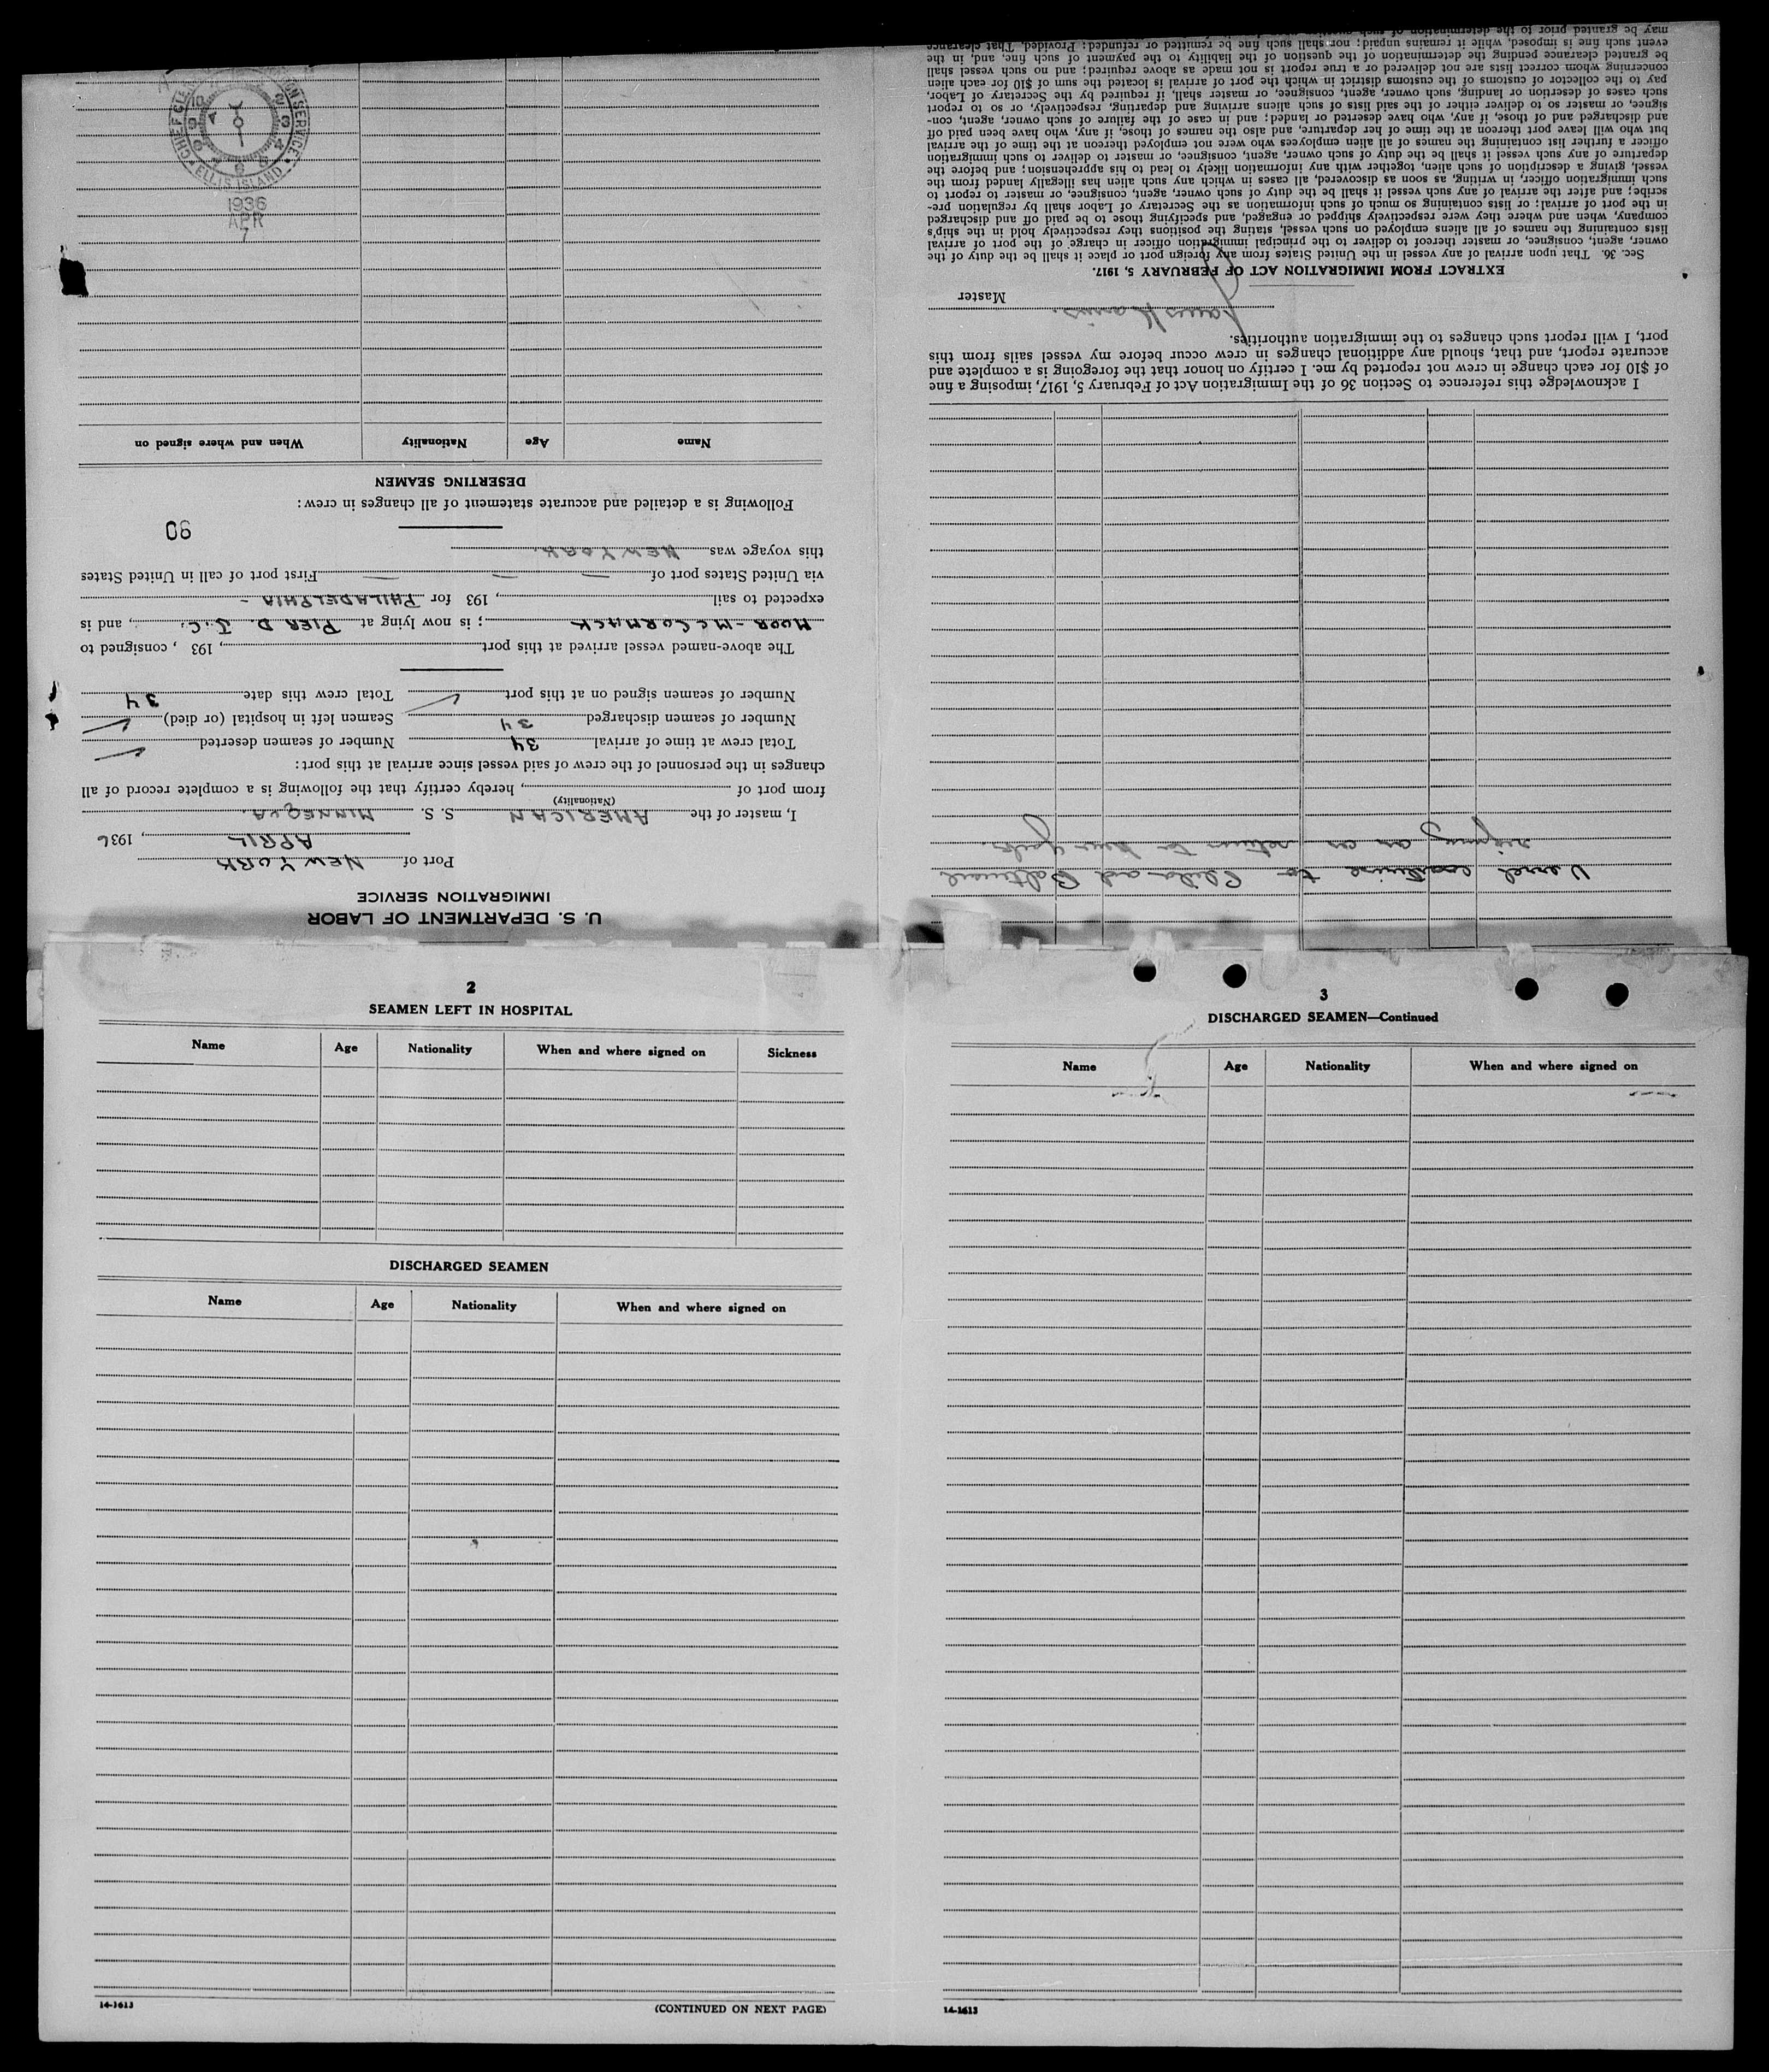 U. S. DEPARTMENT OF LABOR
IMMIGRATION SERVICE
Port of NEW YORK
APRIL, 1936
I, master of the AMERICAN S. S. MINNEQUA.
(Nationality)
from port of , hereby certify that the following is a complete record of all
changes in the personnel of the crew of said vessel since arrival at this port:
Total crew at time of arrival 34 Number of seamen deserted
Number of seamen discharged 34 Seamen left in hospital (or died)
Number of seamen signed on at this port Total crew this date 34
The above-named vessel arrived at this port , 193 , consigned to
MOOR-McCORMACK ; is now lying at PIER D. J.C. , and is
expected to sail , 193 for PHILADELPHIA -
via United States port of — — First port of call in United States —
this voyage was NEW YORK.
90
Following is a detailed and accurate statement of all changes in crew:
DESERTING SEAMEN
Name Age Nationality When and where signed on
7
APR
1936
ELLIS ISLAND
Vessel coastwise to Phila and Baltimore
signing on on return to New York.
I acknowledge this reference to Section 36 of the Immigration Act of February 5, 1917, imposing a fine
of $10 for each change in crew not reported by me. I certify on honor that the foregoing is a complete and
accurate report, and that, should any additional changes in crew occur before my vessel sails from this
port, I will report such changes to the immigration authorities.
Master
EXTRACT FROM IMMIGRATION ACT OF FEBRUARY 5, 1917.
Sec. 36. That upon arrival of any vessel in the United States from any foreign port or place it shall be the duty of the
owner, agent, consignee, or master thereof to deliver to the principal immigration officer in charge of the port of arrival
lists containing the names of all aliens employed on such vessel, stating the positions they respectively hold in the ship's
company, when and where they were respectively shipped or engaged, and specifying those to be paid off and discharged
in the port of arrival; or lists containing so much of such information as the Secretary of Labor shall by regulation pre-
scribe; and after the arrival of any such vessel it shall be the duty of such owner, agent, consignee, or master to report to
such immigration officer, in writing, as soon as discovered, all cases in which any such alien has illegally landed from the
vessel, giving a description of such alien, together with any information likely to lead to his apprehension; and before the
departure of any such vessel it shall be the duty of such owner, agent, consignee, or master to deliver to such immigration
officer a further list containing the names of all alien employees who were not employed thereon at the time of the arrival
but who will leave port thereon at the time of her departure, and also the names of those, if any, who have been paid off
and discharged and of those, if any, who have deserted or landed; and in case of the failure of such owner, agent, con-
signee, or master so to deliver either of the said lists of such aliens arriving and departing, respectively, or so to report
such cases of desertion or landing, such owner, agent, consignee, or master, shall, if required by the Secretary of Labor,
pay to the collector of customs of the customs district in which the port of arrival is located the sum of $10 for each alien
concerning whom correct lists are not delivered or a true report is not made as above required; and no such vessel shall
be granted clearance pending the determination of the question of the liability to the payment of such fine, and, in the
event such fine is imposed, while it remains unpaid; nor shall such fine be remitted or refunded: Provided, That clearance
may be granted prior to the determination of such question
2
SEAMEN LEFT IN HOSPITAL
Name Age Nationality When and where signed on Sickness
DISCHARGED SEAMEN
Name Age Nationality When and where signed on
14-1613 (CONTINUED ON NEXT PAGE)
3
DISCHARGED SEAMEN—Continued
Name Age Nationality When and where signed on
14-1613